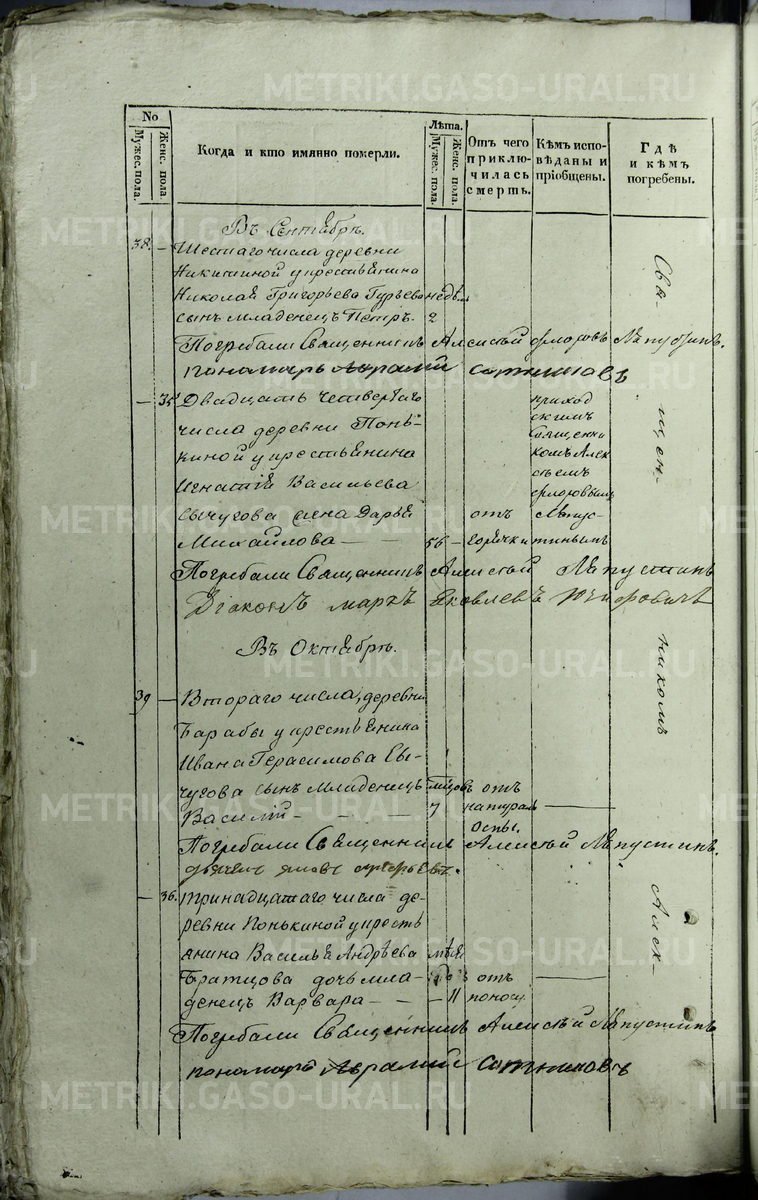 METRIKI.GASO-URAL.RU
No
Мужес. пола.
Женс. пола.
Когда и кто имянно померли.
Лѣта.
Мужес. пола.
Женс. пола.
Отъ чего приключилась смерть.
Кѣмъ исповѣданы и пріобщены.
Гдѣ и кѣмъ погребены.
Въ Сентябрѣ.
38. – Шестаго числа деревни
Никитиной у крестьянина
Николая Григорьева Гурьева недѣл.
сынъ младенецъ Петръ. 2
Погребали Священникъ Алексѣй Фроловъ Лапустинъ.
пономарь Аврамій Сотниковъ
– 35 Двадцать четвертаго
числа деревни Понь-
киной у крестьянина
Игнатія Васильева
Сычугова жена Дарья
Михайлова – – 56 –
отъ
горячки
приход
скимъ
Священни
комъ Алек
сѣемъ
Фроловымъ
Лапус-
тинымъ
Погребали Священникъ Алексѣй Лапустинъ
Діаконъ Маркъ Яковлевъ
Въ Октябрѣ.
39 – Втораго числа, деревни
Барабы у крестьянина
Ивана Герасимова Сы-
чугова сынъ младенецъ
Василій – – – 7
отъ
натурал
оспы.
Погребали Священникъ Алексѣй Лапустинъ.
– 36. Тринадцатаго числа де-
ревни Понькиной у кресть
янина Василья Андрѣева
Братцова дочь мла-
денецъ Варвара – – – 11
отъ
поносу
Погребали Священникъ Алексѣй Лапустинъ
пономарь Аврамій Сотниковъ
Свя-
щен-
никомъ
Алек-